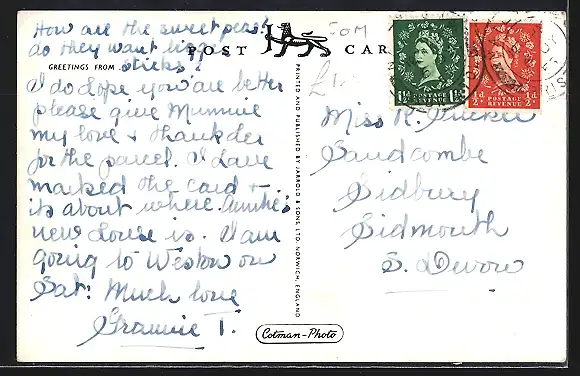 How are the sweet peas?
do they want bigger
sticks?
POST CARD
GREETINGS FROM
I do hope you are better
please give Mummie
my love & thank her
for the parcel. I have
marked the card &
its about where Auntie's
new house is. I am
going to Weston on
Sat: Much love
Grannie T.
PRINTED AND PUBLISHED BY JARROLD & SONS LTD. NORWICH, ENGLAND
Cotman-Photo
50M
POSTAGE
REVENUE
1½d 1½d
POSTAGE
REVENUE
½d ½d
Miss R.
Sandcombe
Sidbury
Sidmouth
S. Devon